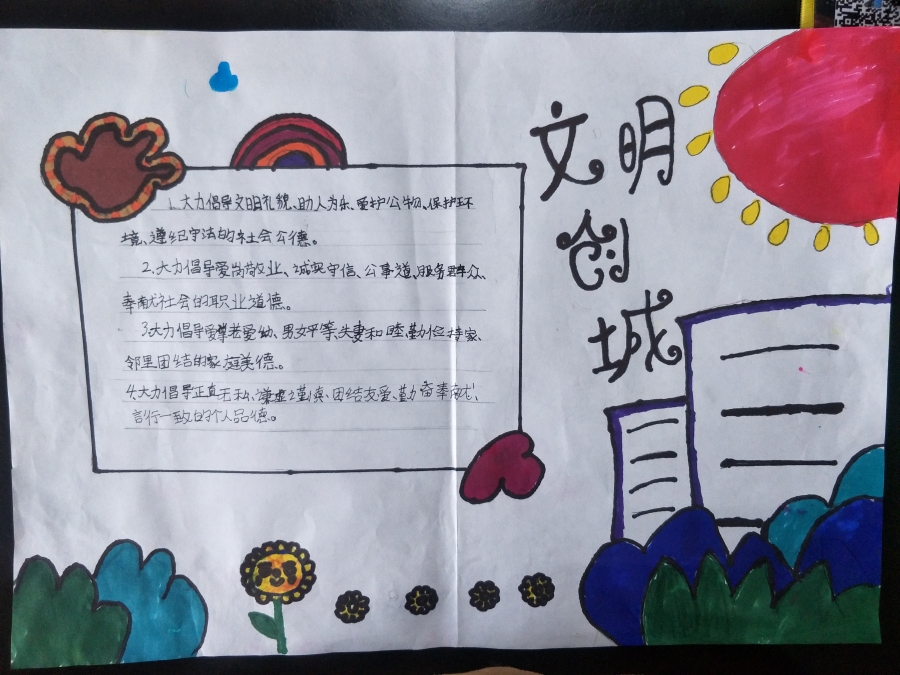 文明
创
城
1.大力倡导文明礼貌、助人为乐、爱护公物、保护环
境、遵纪守法的社会公德。
2.大力倡导爱岗敬业、诚实守信、公事道、服务群众、
奉献社会的职业道德。
3大力倡导爱尊老爱幼、男女平等、夫妻和睦、勤俭持家、
邻里团结的家庭美德。
4.大力倡导正直无私、谦虚谨慎、团结友爱、勤奋奉献、
言行一致的个人品德。